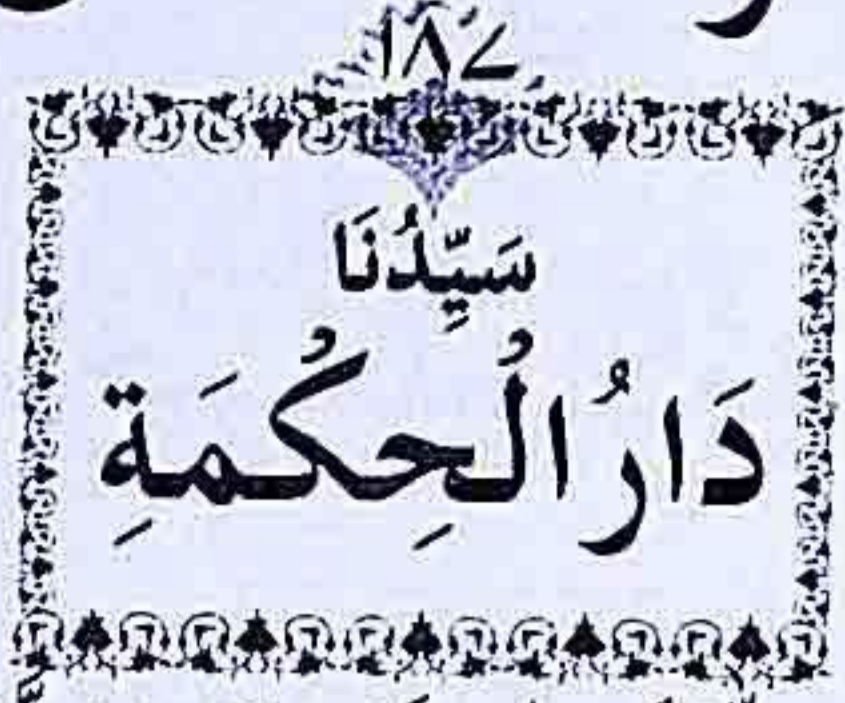 ١٨٧
سَيِّدُنَا
دَارُ الْحِكْمَةِ